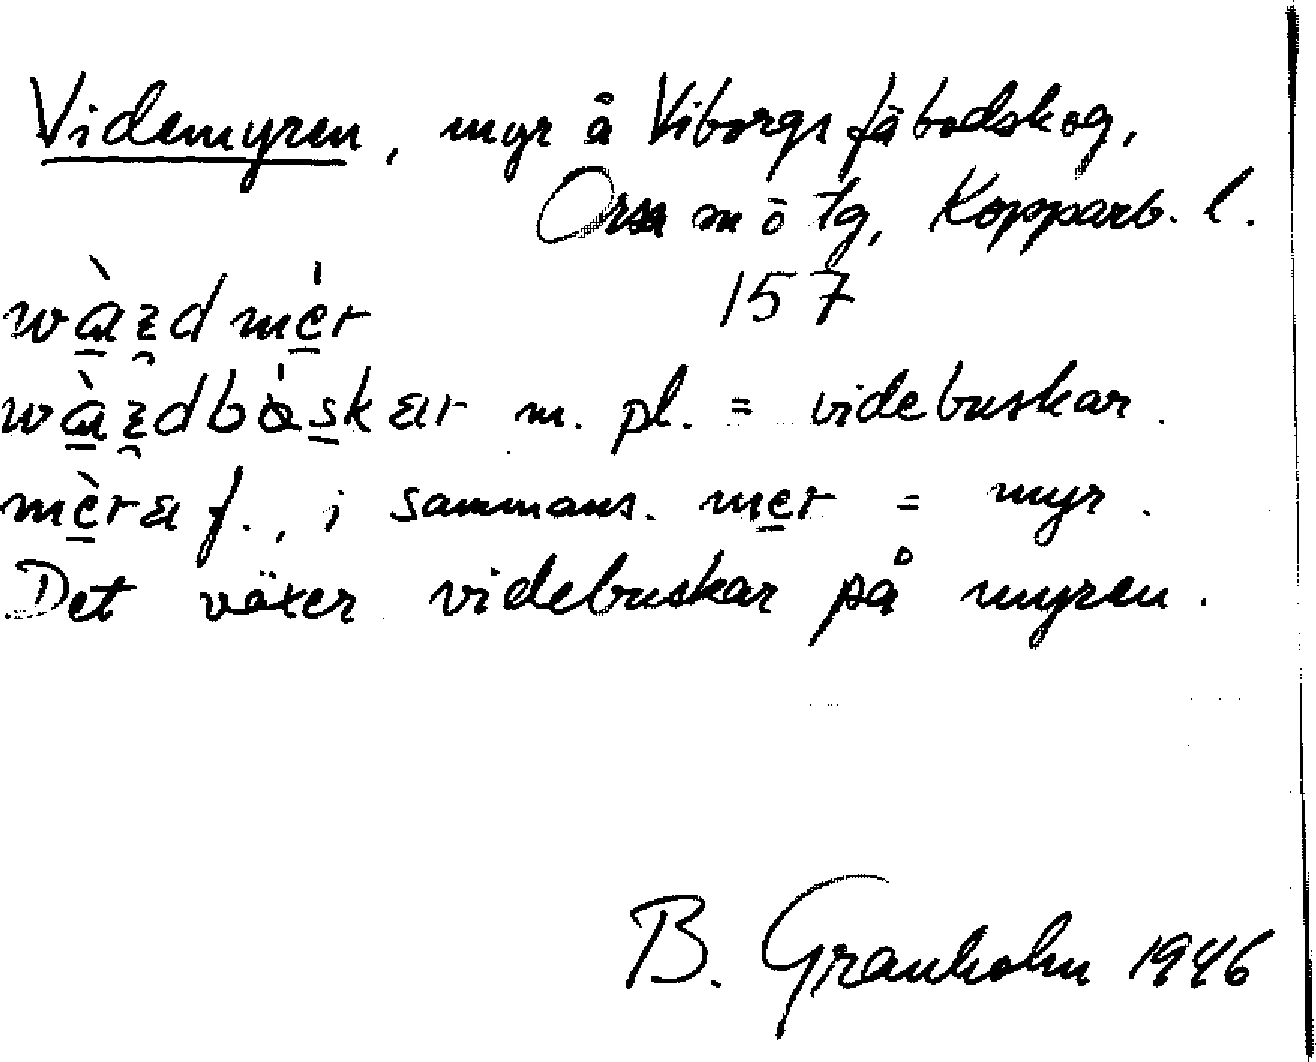 Videmyren, myr å Viborgs fäbodskog,
Orsa m ö tg, Kopparb. l.
157
wàzd mér
wàzdbåskær m. pl. = videbuskar.
mèra f., i sammans. mer = myr.
Det växer videbuskar på myren.
B. Granholm 1946